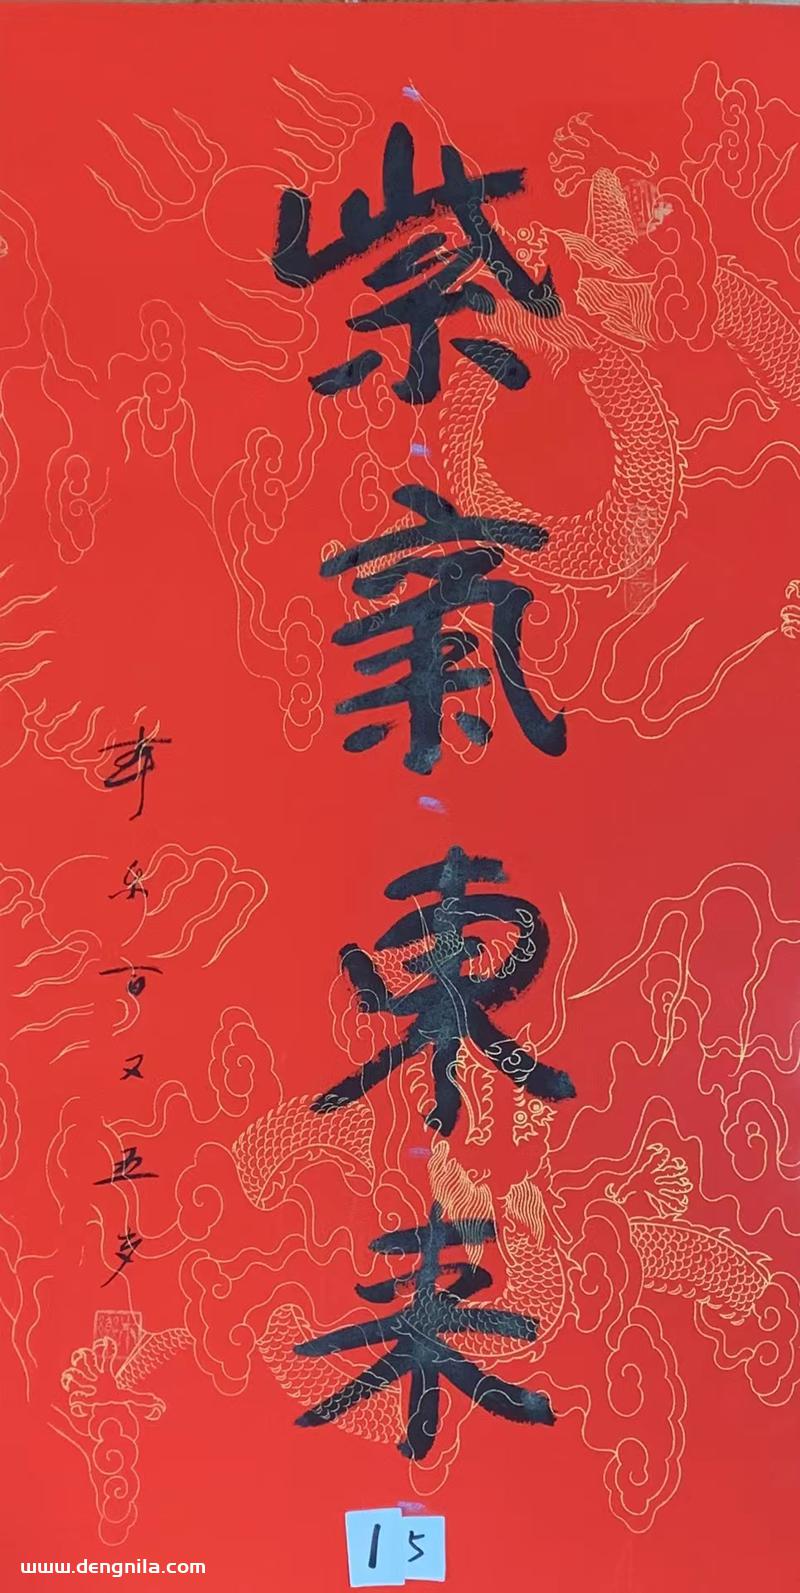 紫氣東来
寿乐百又五岁
15
www.dengnila.com